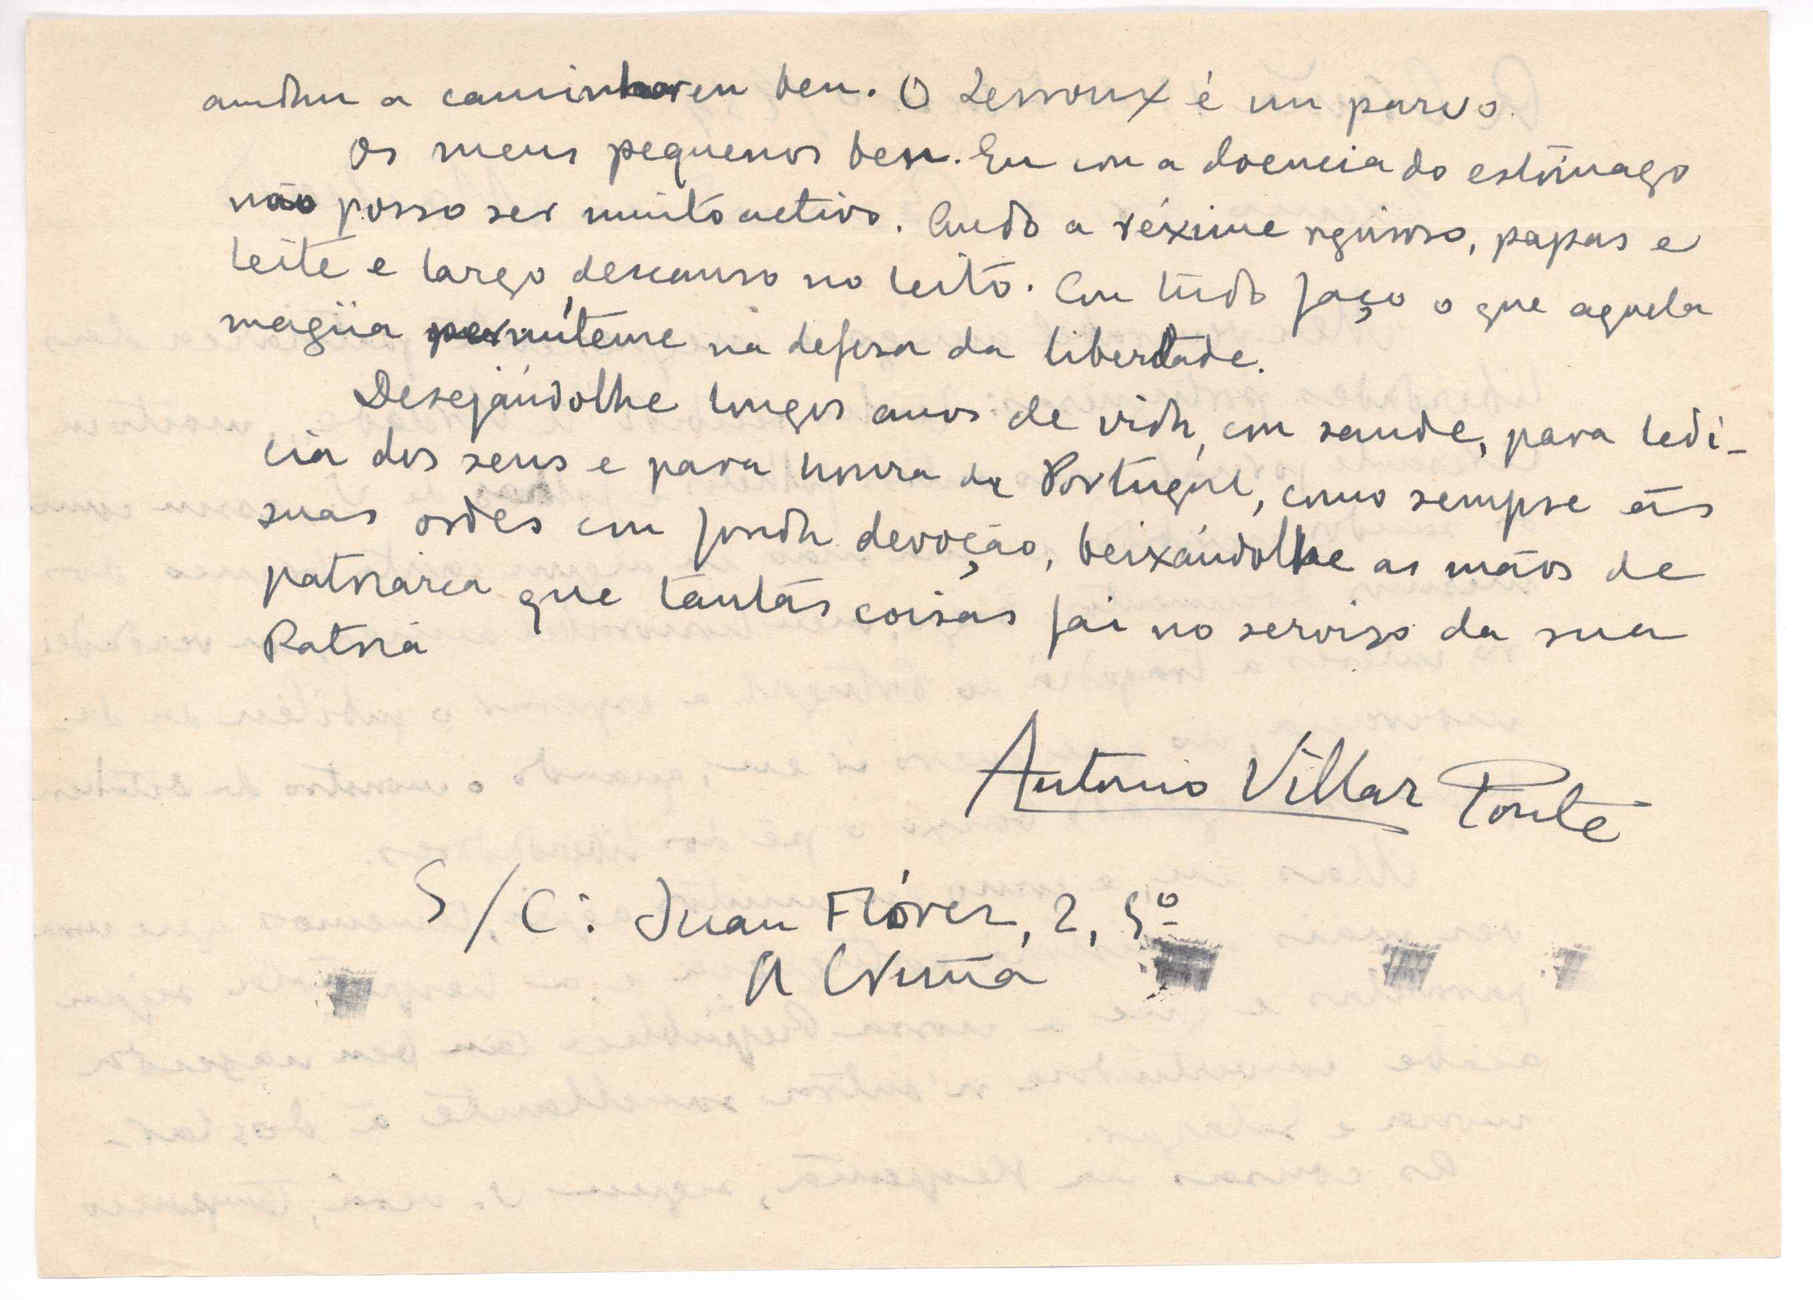 andan a camiñaren ben. O Lerroux é un parvo.
Os meus pequenos ben. Eu con a doencia do estómago
não posso ser muito activo. Ando a réxime rguroso, papas e
leite e largo descanso no leito. Con tudo faço o que aquela
magüa permíteme na defesa da libertade.
Desejándolhe longos anos de vida, con saude, para ledi-
cia dos seus e para honra de Portugal, como sempre ás
suas ordes con fonda devoção, beixándolhe as mãos de
patriarca que tantas coisas fai no servizo da sua
Patria
Antonio Villar Ponte
S/C: Juan Flórez, 2, 5º
A Cruña